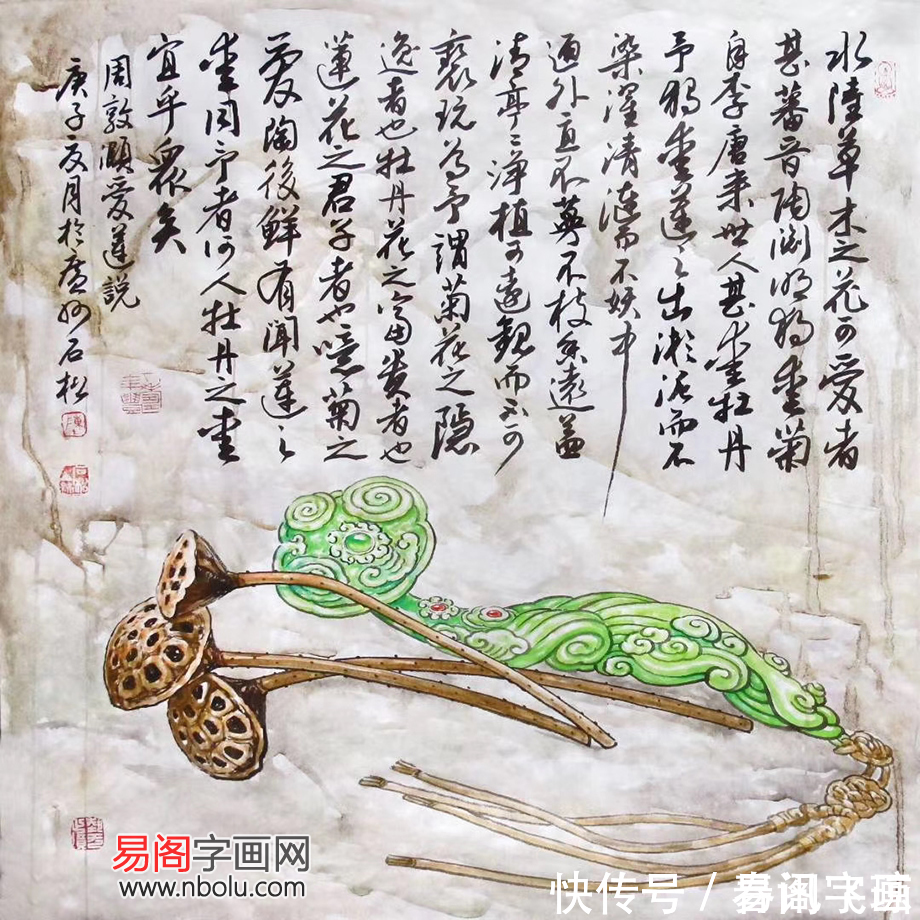 水陸草木之花可爱者
甚蕃晋陶渊明独爱菊
自李唐来世人甚爱牡丹
予独爱莲之出淤泥而不
染濯清涟而不妖中
通外直不蔓不枝香远益
清亭亭净植可遠觀而不可
褻玩焉予謂菊花之隱
逸者也牡丹花之富贵者也
蓮花之君子者也噫菊之
爱陶後鮮有聞蓮之
爱同予者何人牡丹之爱
宜乎衆矣
周敦頤爱蓮説
庚子夏月於
石松
易阁字画网
www.nbolu.com
快传号 /